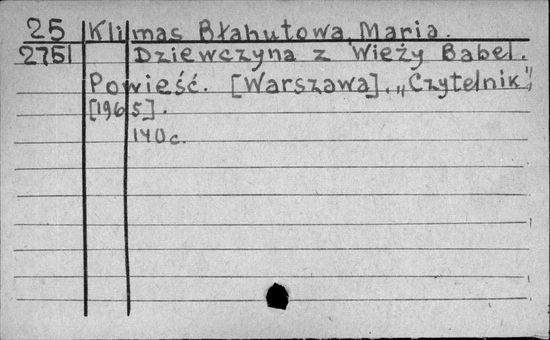 25 Klimas Błahutowa, Maria.
2751 Dziewczyna z Wieży Babel.
Powieść. [Warszawa], „Czytelnik",
[1965].
140 c.